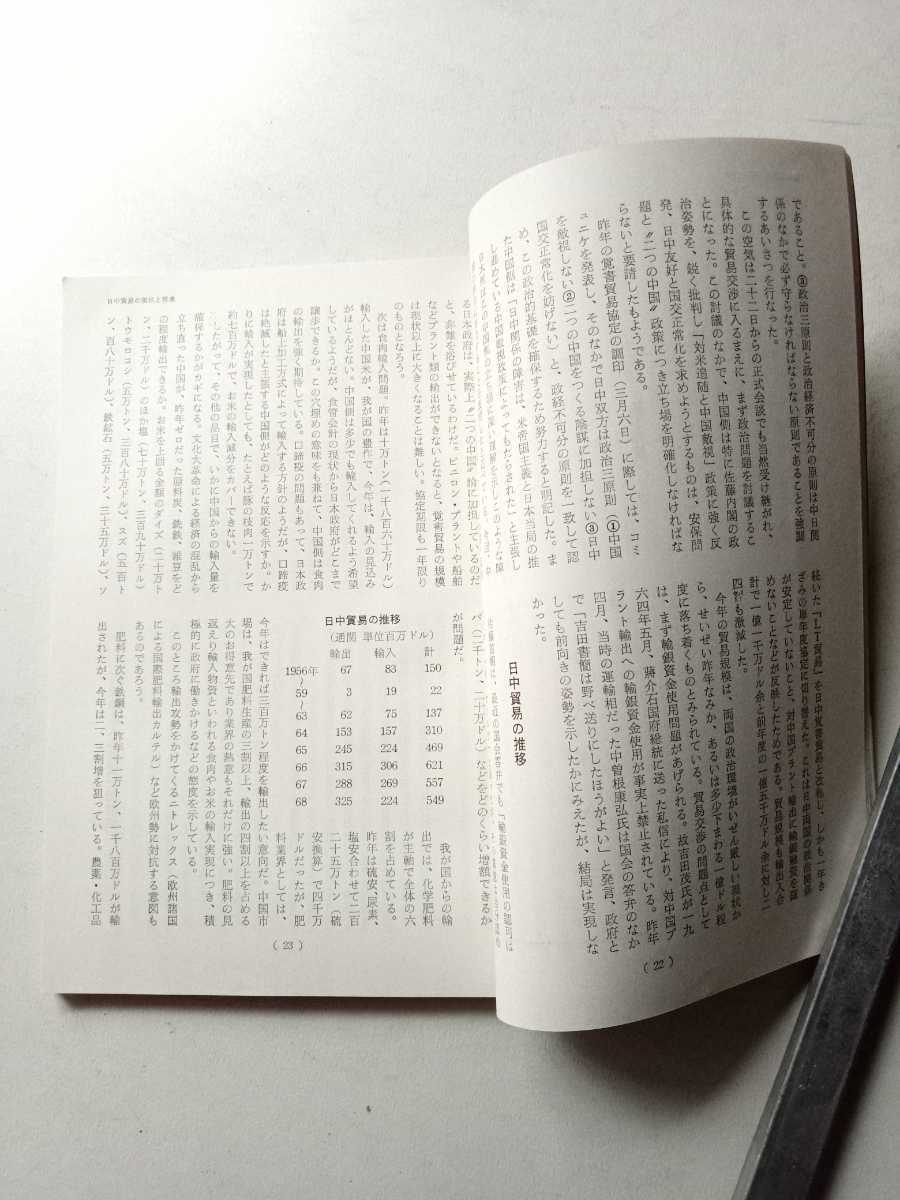 であること。③政治三原則と政治経済不可分の原則は中日関
係のなかで必ず守らなければならない原則であることを強調
するあいさつを行なった。
この空気は二十二日からの正式会談でも当然受け継がれ、
具体的な貿易交渉に入るまえに、まず政治問題を討議するこ
とになった。この討議のなかで、中国側は特に佐藤内閣の政
治姿勢を、鋭く批判し「対米追随と中国敵視」政策に強く反
発、日中友好と国交正常化を求めようとするものは、安保問
題と〝二つの中国〟政策につき立場を明確化しなければな
らないと要請したもようである。
昨年の覚書貿易協定の調印（三月六日）に際しては、コミ
ュニケを発表し、そのなかで日中双方は政治三原則（①中国
を敵視しない②二つの中国をつくる陰謀に加担しない③日中
国交正常化を妨げない）と、政経不可分の原則を一致して認
め、この政治的基礎を確保するため努力すると明記した。ま
た中国側は「日中関係の障害は、米帝国主義と日本当局の推
し進めている中国敵視政策によってもたらされた」と主張し
続いた『LT貿易』を日中覚書貿易と改称し、しかも一年き
ざみの単年度協定に切り替えた。これは日中両国の政治関係
が安定していないこと、対中国プラント輸出に輸銀融資を認
めないことなどが反映したためである。貿易規模も輸出入合
計で一億一千万ドル余と前年度の一億五千万ドル余に対し二
四％も激減した。
今年の貿易規模は、両国の政治環境がいぜん厳しい現状か
ら、せいぜい昨年なみか、あるいは多少下まわる一億ドル程
度に落ち着くものとみられている。貿易交渉の問題点として
は、まず輸銀資金使用問題があげられる。故吉田茂氏が一九
六四年五月、蔣介石国府総統に送った私信により、対中国プ
ラント輸出への輸銀資金使用が事実上禁止されている。昨年
四月、当時の運輸相だった中曽根康弘氏は国会の答弁のなか
で「吉田書簡は野べ送りにしたほうがよい」と発言、政府と
しても前向きの姿勢を示したかにみえたが、結局は実現しな
かった。
日中貿易の推移
( 22 )
日中貿易の現状と将来
る日本政府は、実際上〝二つの中国〟論に加担しているのだ
と、非難を浴びせているわけだ。ビニロン・プラントや船舶
などプラント類の輸出ができないとなると、覚書貿易の規模
は現状以上に大きくなることは難しい。協定期限も一年限り
のものとなろう。
次は食肉輸入問題。昨年は十万トン（一千八百六十七万ドル）
輸入した中国米が、我が国の豊作で、今年は、輸入の見込み
がほとんどない。中国側は多少でも輸入してくれるよう希望
しているようだが、食管会計の現状から日本政府がどこまで
譲歩できるか。この穴埋めの意味も兼ねて、中国側は食肉
の輸出を強く期待している。口蹄疫の問題もあって、日本政
府は船上加工方式によって輸入する方針のようだが、口蹄疫
は絶滅したと主張する中国側がどのような反応を示すか。か
りに輸入が実現したとしても、たとえば豚の枝肉一万トンで
約七百万ドルで、お米の輸入減分をカバーできない。
したがって、その他の品目で、いかに中国からの輸入量を
確保するかがカギになる。文化大革命による経済の混乱から
立ち直った中国が、昨年ゼロだった原料炭、銑鉄、雑豆をど
の程度輸出できるか。お米を上回る金額のダイズ（二十万ト
ン、二千万ドル）のほか塩（七十万トン、三百九十万ドル）、
トウモロコシ（五万トン、三百八十万ドル）、スズ（五百ト
ン、百八十万ドル）、鉄鉱石（五万トン、三十五万ドル）、ソ
バ（二千トン、二十万ドル）などをどのくらい増額できるか
が問題だ。
日中貿易の推移
（通関 単位百万ドル）
輸出 輸入 計
1956年 67 83 150
～
59 3 19 22
～
63 62 75 137
64 153 157 310
65 245 224 469
66 315 306 621
67 288 269 557
68 325 224 549
我が国からの輸
出では、化学肥料
が主動で全体の六
割を占めている。
昨年は硫安、尿素、
塩安合わせて二百
二十五万トン（硫
安換算）で四千万
ドルだったが、肥
料業界としては、
今年はできれば三百万トン程度を輸出したい意向だ。中国市
場は、我が国肥料生産の三割以上、輸出の四割以上を占める
大のお得意先であり業界の熱意もそれだけに強い。肥料の見
返えり輸入物資といわれる食肉やお米の輸入実現につき、積
極的に政府に働きかけるなどの態度を示している。
このところ輸出攻勢をかけてくるニトレックス（欧州諸国
による国際肥料輸出カルテル）など欧州勢に対抗する意図も
あるのであろう。
肥料に次ぐ鉄鋼は、昨年十一万トン、一千八百万ドルが輸
出されたが、今年は二、三割増を狙っている。農薬・化工品
( 23 )